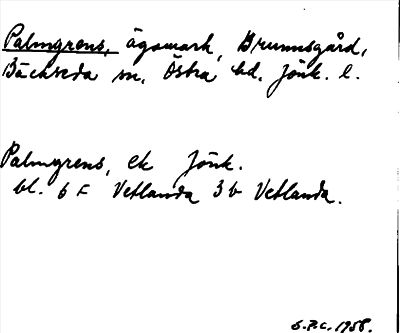 Palmgrens, ägomark, Brunnsgård,
Bäckseda sn, Östra hd, Jönk. l.
Palmgrens, ek Jönk.
bl. 6 F Vetlanda 3 b Vetlanda.
1958.